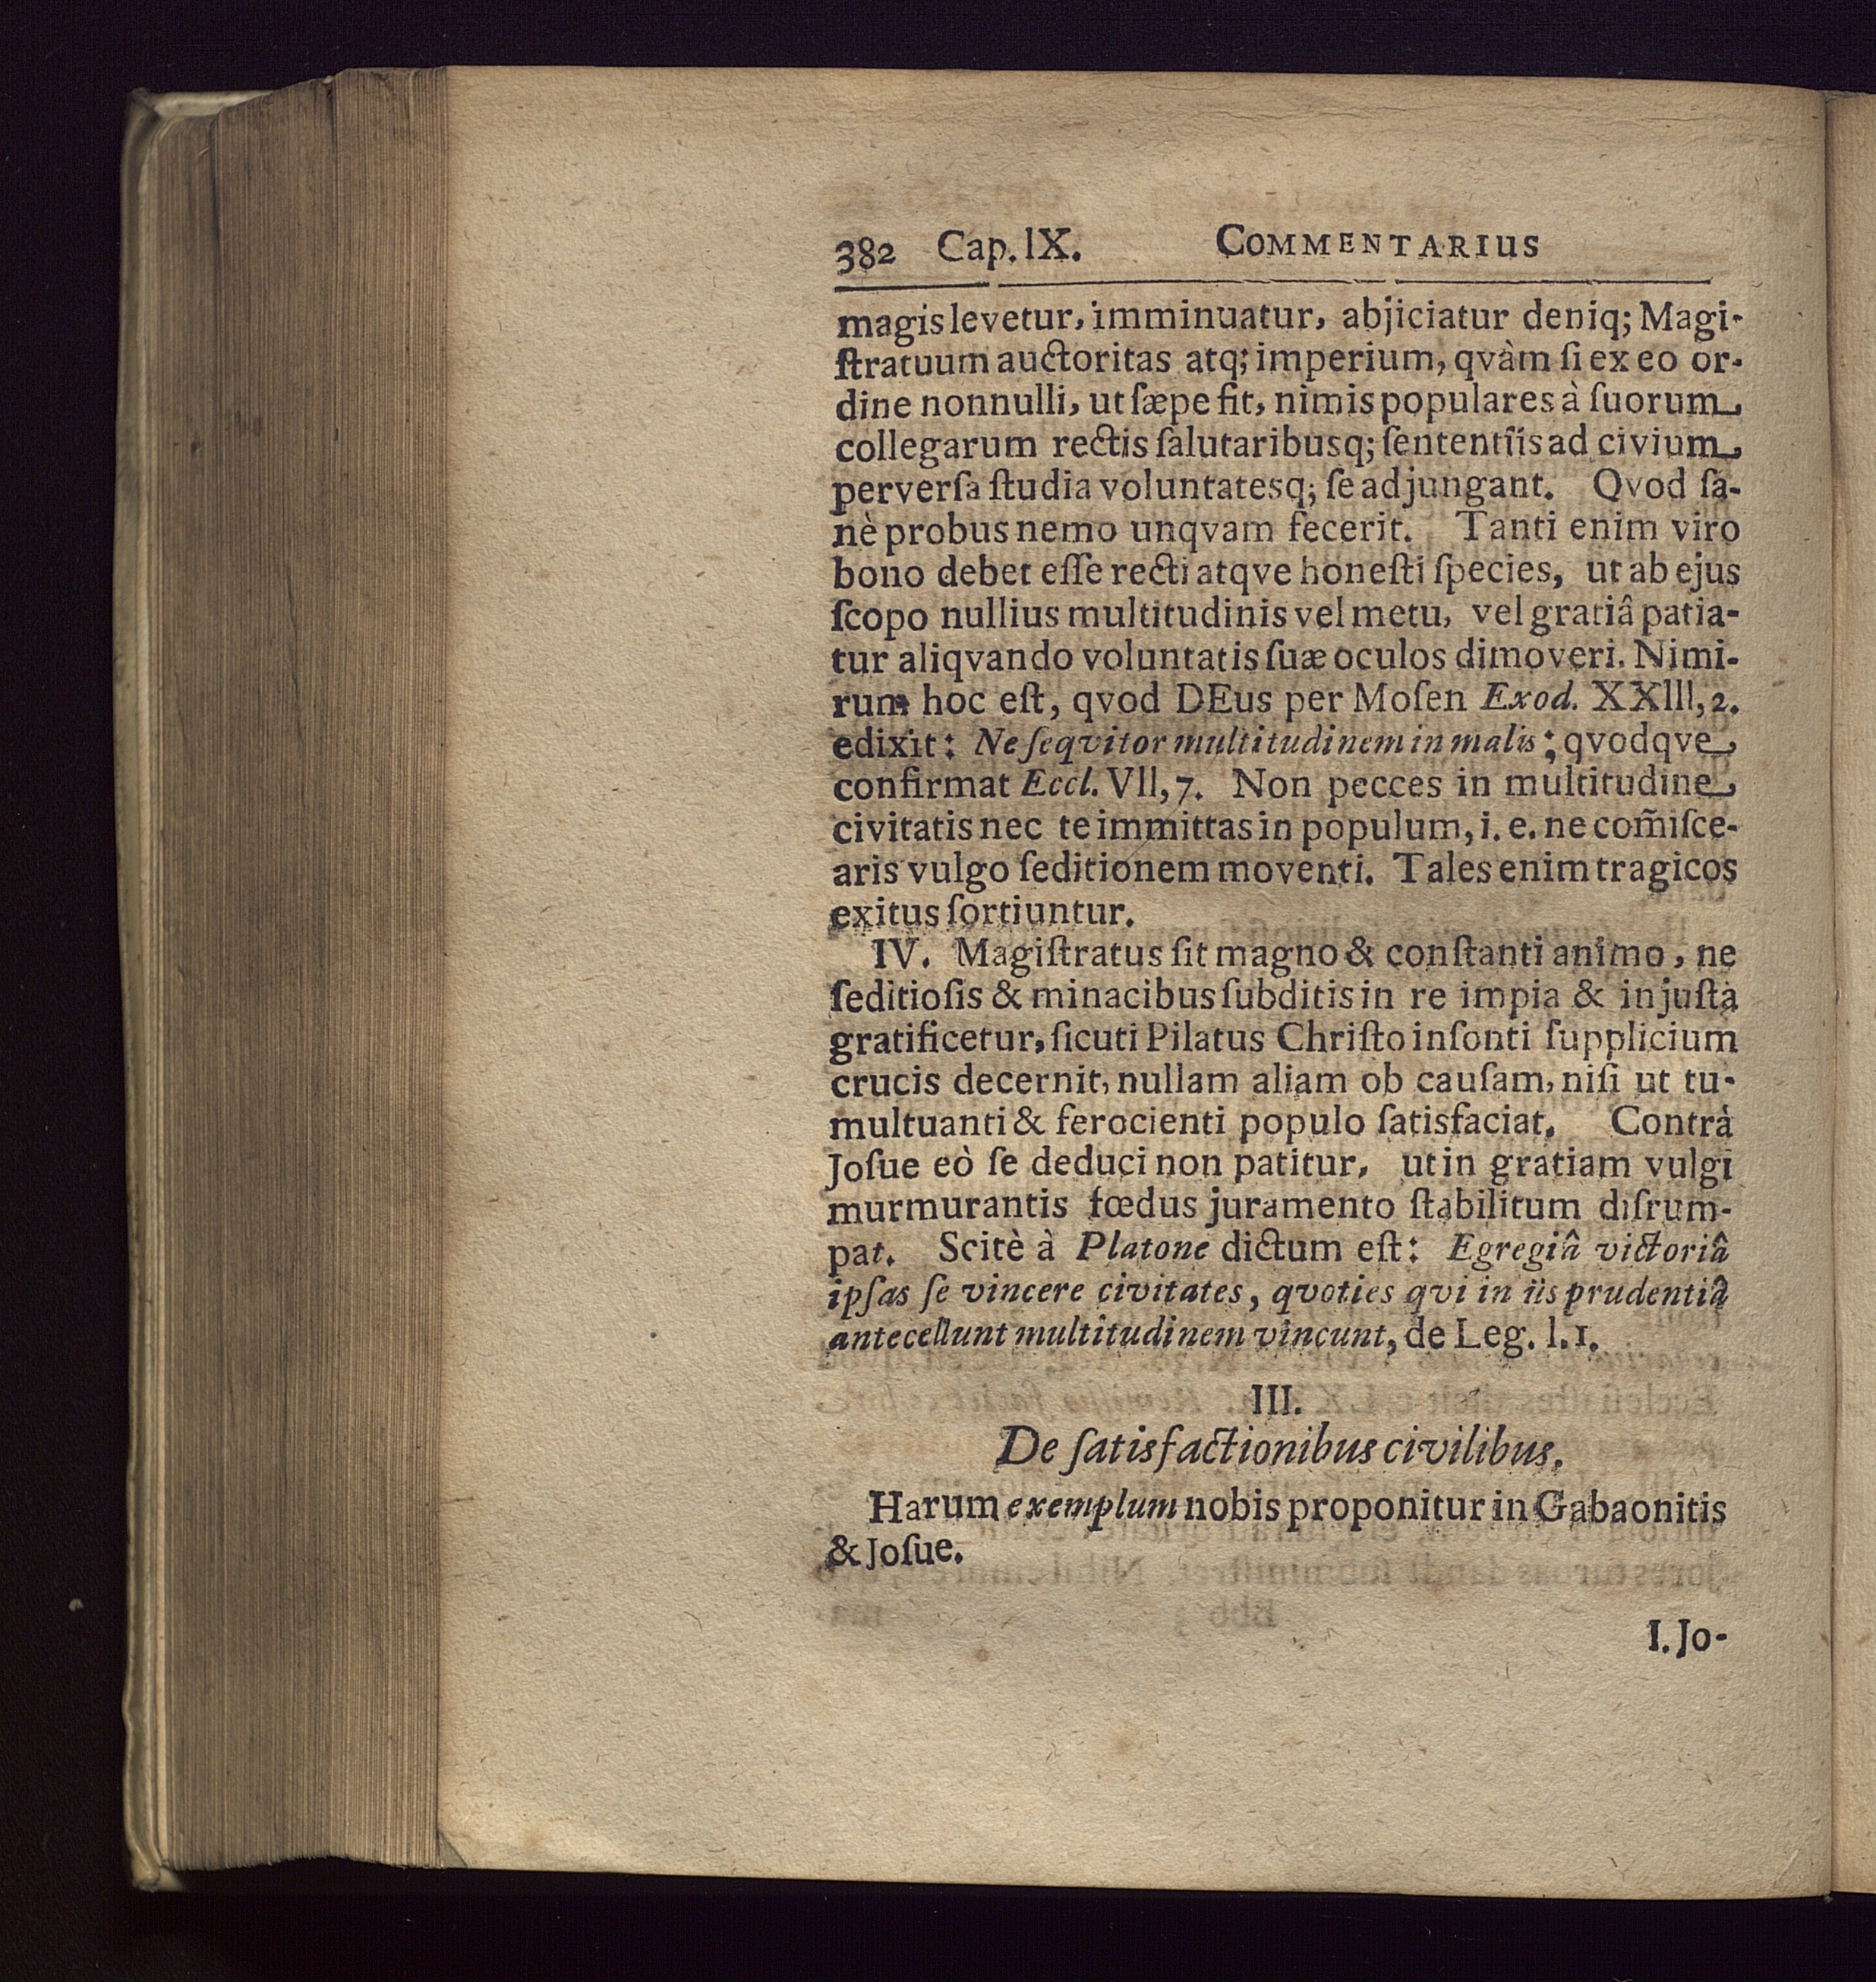 382 Cap. IX. COMMENTARIUS
magis levetur, imminuatur, abjiciatur deniq; Magi-
ſtratuum auctoritas atq; imperium, qvàm ſi ex eo or-
dine nonnulli, ut ſæpe fit, nimis populares à ſuorum
collegarum rectis ſalutaribusq; ſententiis ad civium
perverſa ſtudia voluntatesq; ſe adjungant. Qvod ſa-
nè probus nemo unqvam fecerit. Tanti enim viro
bono debet eſſe recti atqve honeſti ſpecies, ut ab ejus
ſcopo nullius multitudinis vel metu, vel gratiâ patia-
tur aliqvando voluntatis ſuæ oculos dimoveri. Nimi-
rum hoc eſt, qvod DEus per Moſen Exod. XXIII, 2.
edixit: Ne ſeqvitor multitudinem in malis; qvodqve
confirmat Eccl. VII, 7. Non pecces in multitudine
civitatis nec te immittas in populum, i. e. ne com̃iſce-
aris vulgo ſeditionem moventi. Tales enim tragicos
exitus ſortiuntur.
IV. Magiſtratus ſit magno & conſtanti animo, ne
ſeditioſis & minacibus ſubditis in re impia & injuſta
gratificetur, ſicuti Pilatus Chriſto inſonti ſupplicium
crucis decernit, nullam aliam ob cauſam, niſi ut tu-
multuanti & ferocienti populo ſatisfaciat. Contrà
Joſue eò ſe deduci non patitur, ut in gratiam vulgi
murmurantis fœdus juramento ſtabilitum diſrum-
pat. Scitè à Platone dictum eſt: Egregiâ victoriâ
ipſas ſe vincere civitates, qvoties qvi in iis prudentiâ
antecellunt multitudinem vincunt, de Leg. l. 1.
III.
De ſatisfactionibus civilibus.
Harum exemplum nobis proponitur in Gabaonitis
& Joſue.
I. Jo-